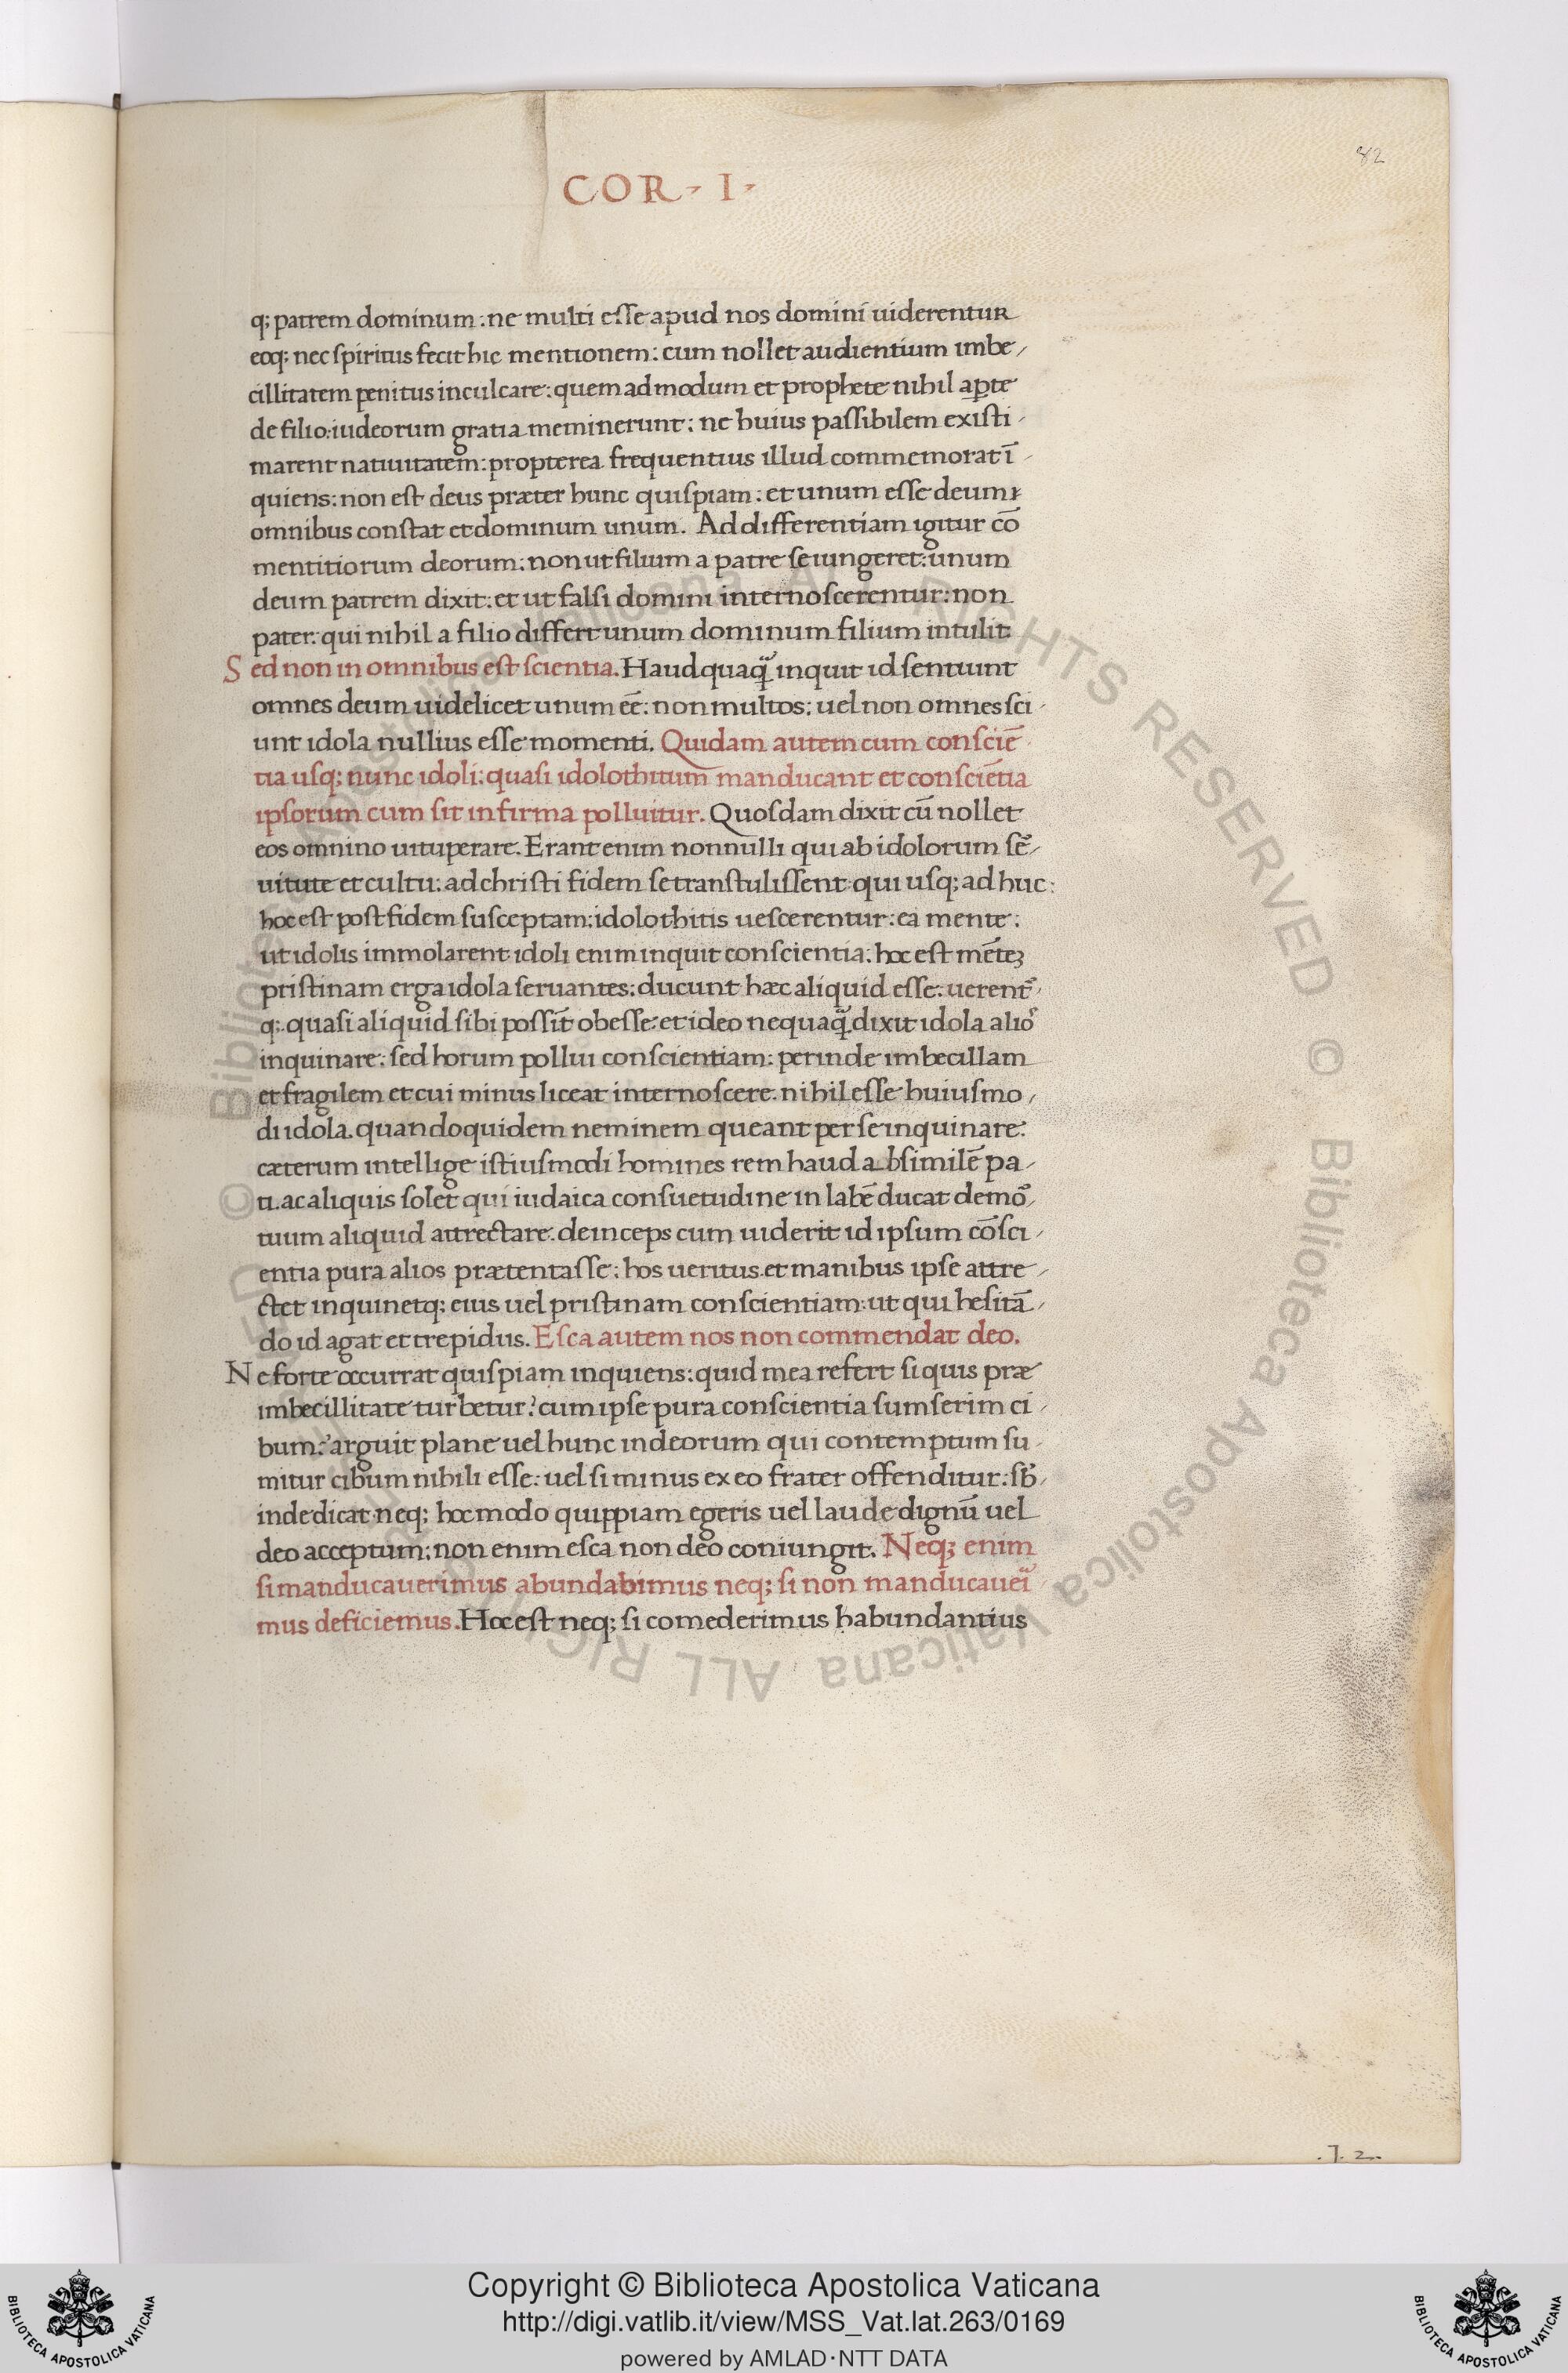 82
COR · I ·
q; patrem dominum: ne multi esse apud nos domini uiderentur
eoq; nec spiritus fecit hic mentionem: cum nollet audientium imbe/
cillitatem penitus inculcare: quemadmodum et prophete nihil aꝑte
de filio: iudeorum gratia meminerunt: ne huius passibilem existi/
marent natiuitatem: propterea frequentius illud commemorat ī/
quiens: non est deus præter hunc quispiam: et unum esse deum
omnibus constat et dominum unum. Ad differentiam igitur cō
mentitiorum deorum: non ut filium a patre seiungeret: unum
deum patrem dixit: et ut falsi domini internoscerentur: non
pater: qui nihil a filio differt unum dominum filium intulit
Sed non in omnibus est scientia. Haudquaq̃ inquit id sentiunt
omnes deum uidelicet unum eē: non multos: uel non omnes sci/
unt idola nullius esse momenti. Quidam autem cum consciē
tia usq; nunc idoli: quasi idolothitum manducant et consciētia
ipsorum cum sit infirma polluitur. Quosdam dixit cū nollet
eos omnino uituperare. Erant enim nonnulli qui ab idolorum sẽ/
uitute et cultu: ad christi fidem se transtulissent qui usq; ad huc:
hoc est post fidem susceptam: idolothitis uescerentur: ea mente:
ut idolis immolarent idoli enim inquit conscientia: hoc est mētez
pristinam erga idola seruantes: ducunt hæc aliquid esse: uerent᷑
q; quasi aliquid sibi possīt obesse: et ideo nequaq̃ dixit idola alio᷑
inquinare: sed horum pollui conscientiam: perinde imbecillam
et fragilem et cui minus liceat internoscere. nihil esse huiusmo/
di idola. quandoquidem neminem queant per se inquinare:
cæterum intellige istiusmodi homines rem haud absimilē pa/
ti. ac aliquis solet qui iudaica consuetudine in labē ducat demo᷑/
tuum aliquid attrectare. deinceps cum uiderit id ipsum cōsci/
entia pura alios prætentasse: hos ueritus et manibus ipse attre/
ctet inquinetq; eius uel pristinam conscientiam: ut qui hesitā/
do id agat et trepidus. Esca autem nos non commendat deo.
Ne forte occurrat quispiam inquiens: quid mea refert si quis præ
imbecillitate turbetur? cum ipse pura conscientia sumserim ci/
bum? arguit plane uel hunc indeorum qui contemptum su/
mitur cibum nihili esse: uel si minus ex eo frater offenditur: sb᷑/
inde dicat neq; hoc modo quippiam egeris uel laude dignū uel
deo acceptum: non enim esca non deo coniungit. Neq; enim
si manducauerimus abundabimus neq; si non manducaueı᷑
mus deficiemus. Hoc est neq; si comederimus habundantius
.J. 2.
© Biblioteca Apostolica Vaticana ALL RIGHTS RESERVED © Biblioteca Apostolica Vaticana ALL RIGHTS RESERVED
Copyright © Biblioteca Apostolica Vaticana
http://digi.vatlib.it/view/MSS_Vat.lat.263/0169
powered by AMLAD·NTT DATA
BIBLIOTECA APOSTOLICA VATICANA
BIBLIOTECA APOSTOLICA VATICANA